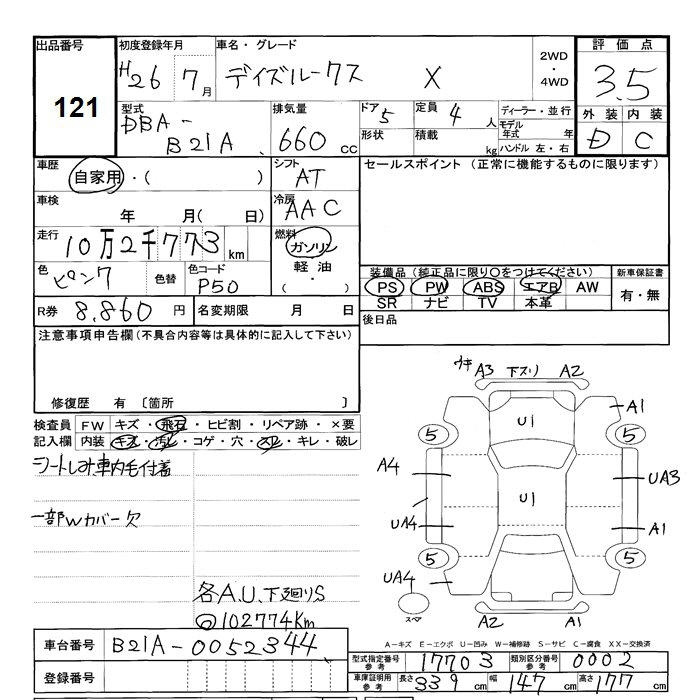 出品番号
121
初度登録年月
H26 7月
車名・グレード
デイズルークス X
2WD
・
4WD
評価点
3.5
外装 内装
D C
型式
DBA-
B21A
排気量
660 CC
ドア 5
形状
定員 4 人
積載 kg
ディーラー・並行
モデル年式 年
ハンドル 左・右
車歴
自家用・( )
シフト
AT
セールスポイント (正常に機能するものに限ります)
車検
年 月( 日)
冷房
AAC
走行
10万2千773 km
燃料
ガソリン
軽油・
( )
色
ピンク
色替
色コード
P50
装備品(純正品に限り○をつけてください)
PS PW ABS エアB AW
SR ナビ TV 本革
新車保証書
有・無
R券 8,860 円
名変期限 月 日
後日品
注意事項申告欄(不具合内容等は具体的に記入して下さい)
修復歴 有 〔箇所 〕
検査員記入欄
FW キズ・飛石・ヒビ割・リペア跡・×要
内装 キズ・汚レ・コゲ・穴・スレ・キレ・破レ
シートしみ車内毛付着
一部Wカバー欠
各A.U.下廻りS
◎102774Km
ウキ A3 下スリ A2
U1
A1
5
5
A4
UA3
U1
UA4
A1
5
5
UA4
スペア
A2 A1
A-キズ E-エクボ U-凹み W-補修跡 S-サビ C-腐食 XX-交換済
車台番号 B21A-0052344
登録番号
型式指定番号 参考 17703
類別区分番号 参考 0002
車庫証明用 参考 長さ 339 cm 幅 147 cm 高さ 177 cm